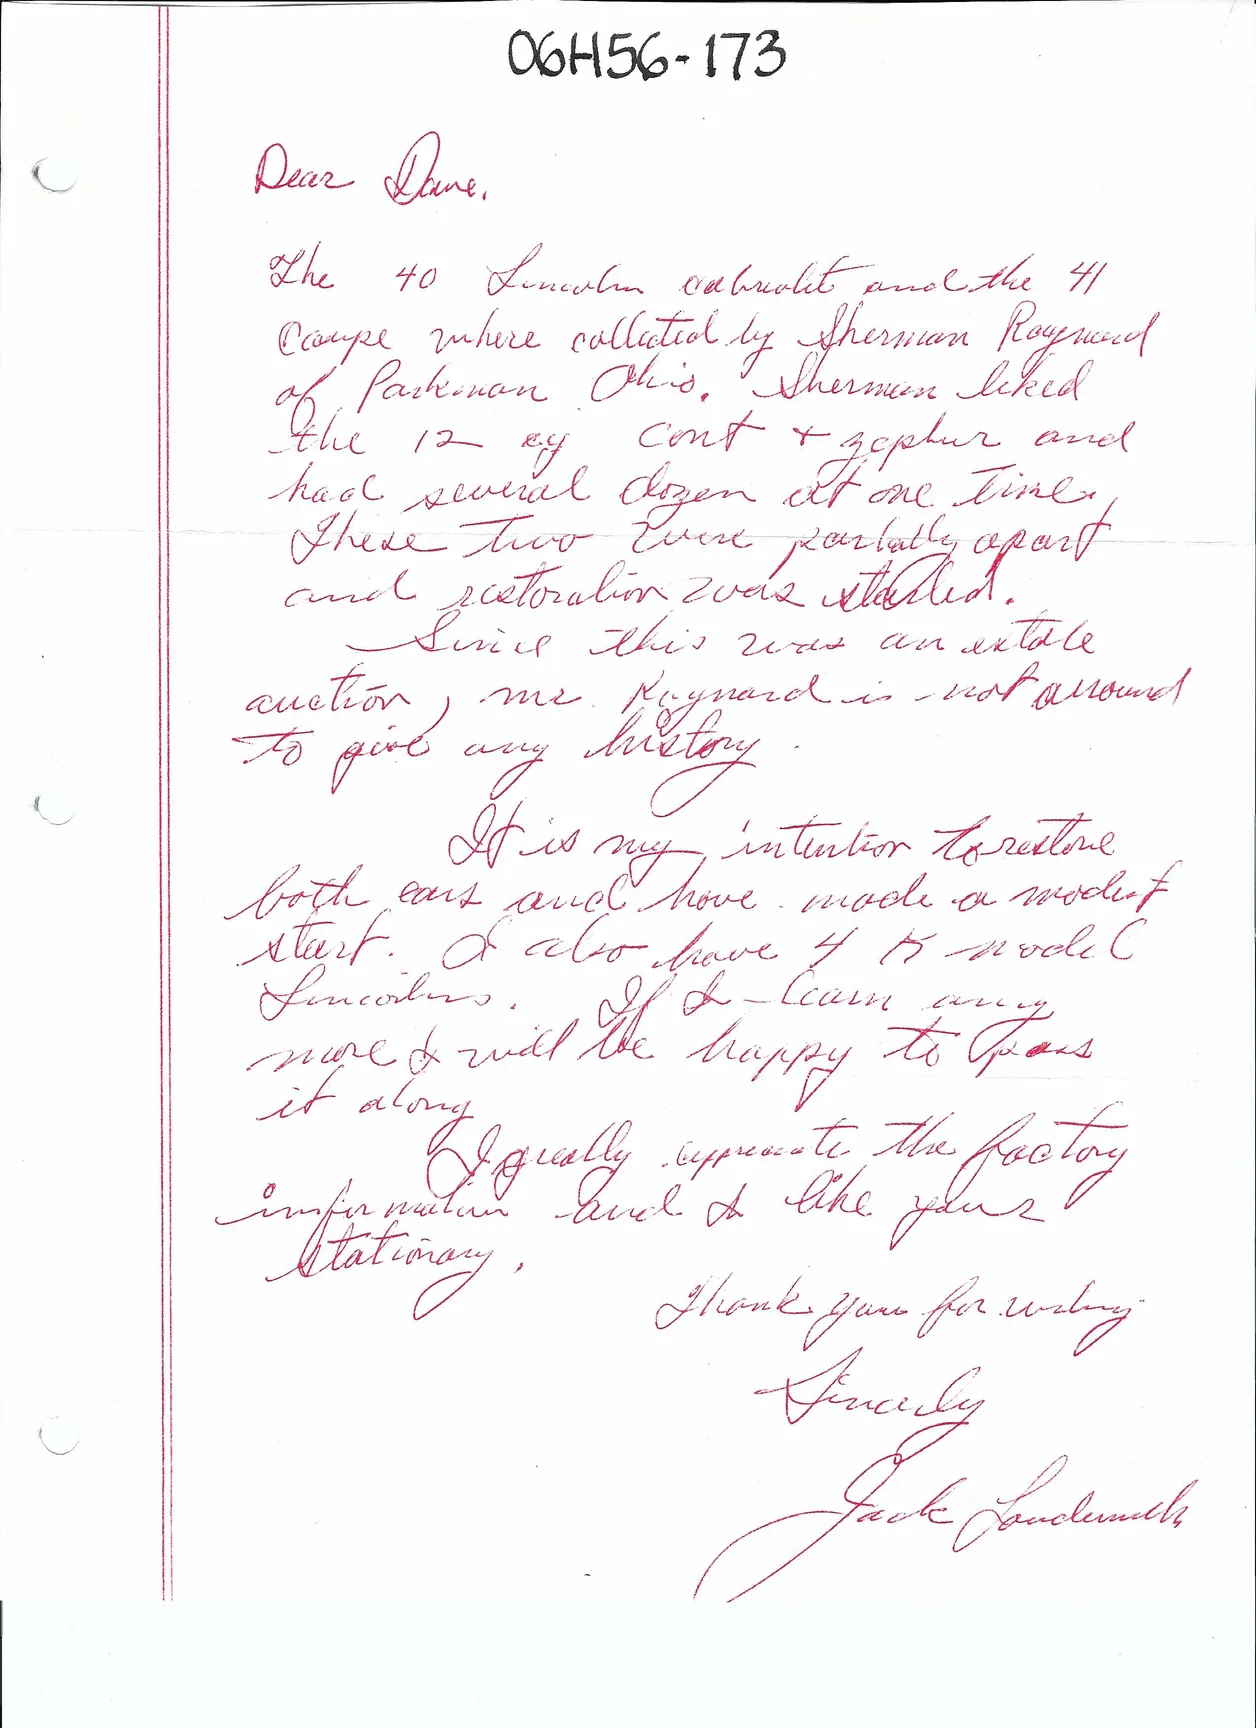 06H56-173
Dear Dave,
The 40 Lincoln cabriolet and the 41
Coupe where collected by Sherman Raynard
of Parkman Ohio. Sherman liked
the 12 cy Cont + zephur and
had several dozen at one time,
These two were partially apart
and restoration was started.
Since this was an estate
auction, mr. Raynard is not arround
to give any history.
It is my intention to restore
both cars and have made a modest
start. I also have 4 K model
Lincolns. If I learn any
more I will be happy to pass
it along
I really appreciate the factory
information and I like your
stationary.
Thank you for writing
Sincerly
Jack